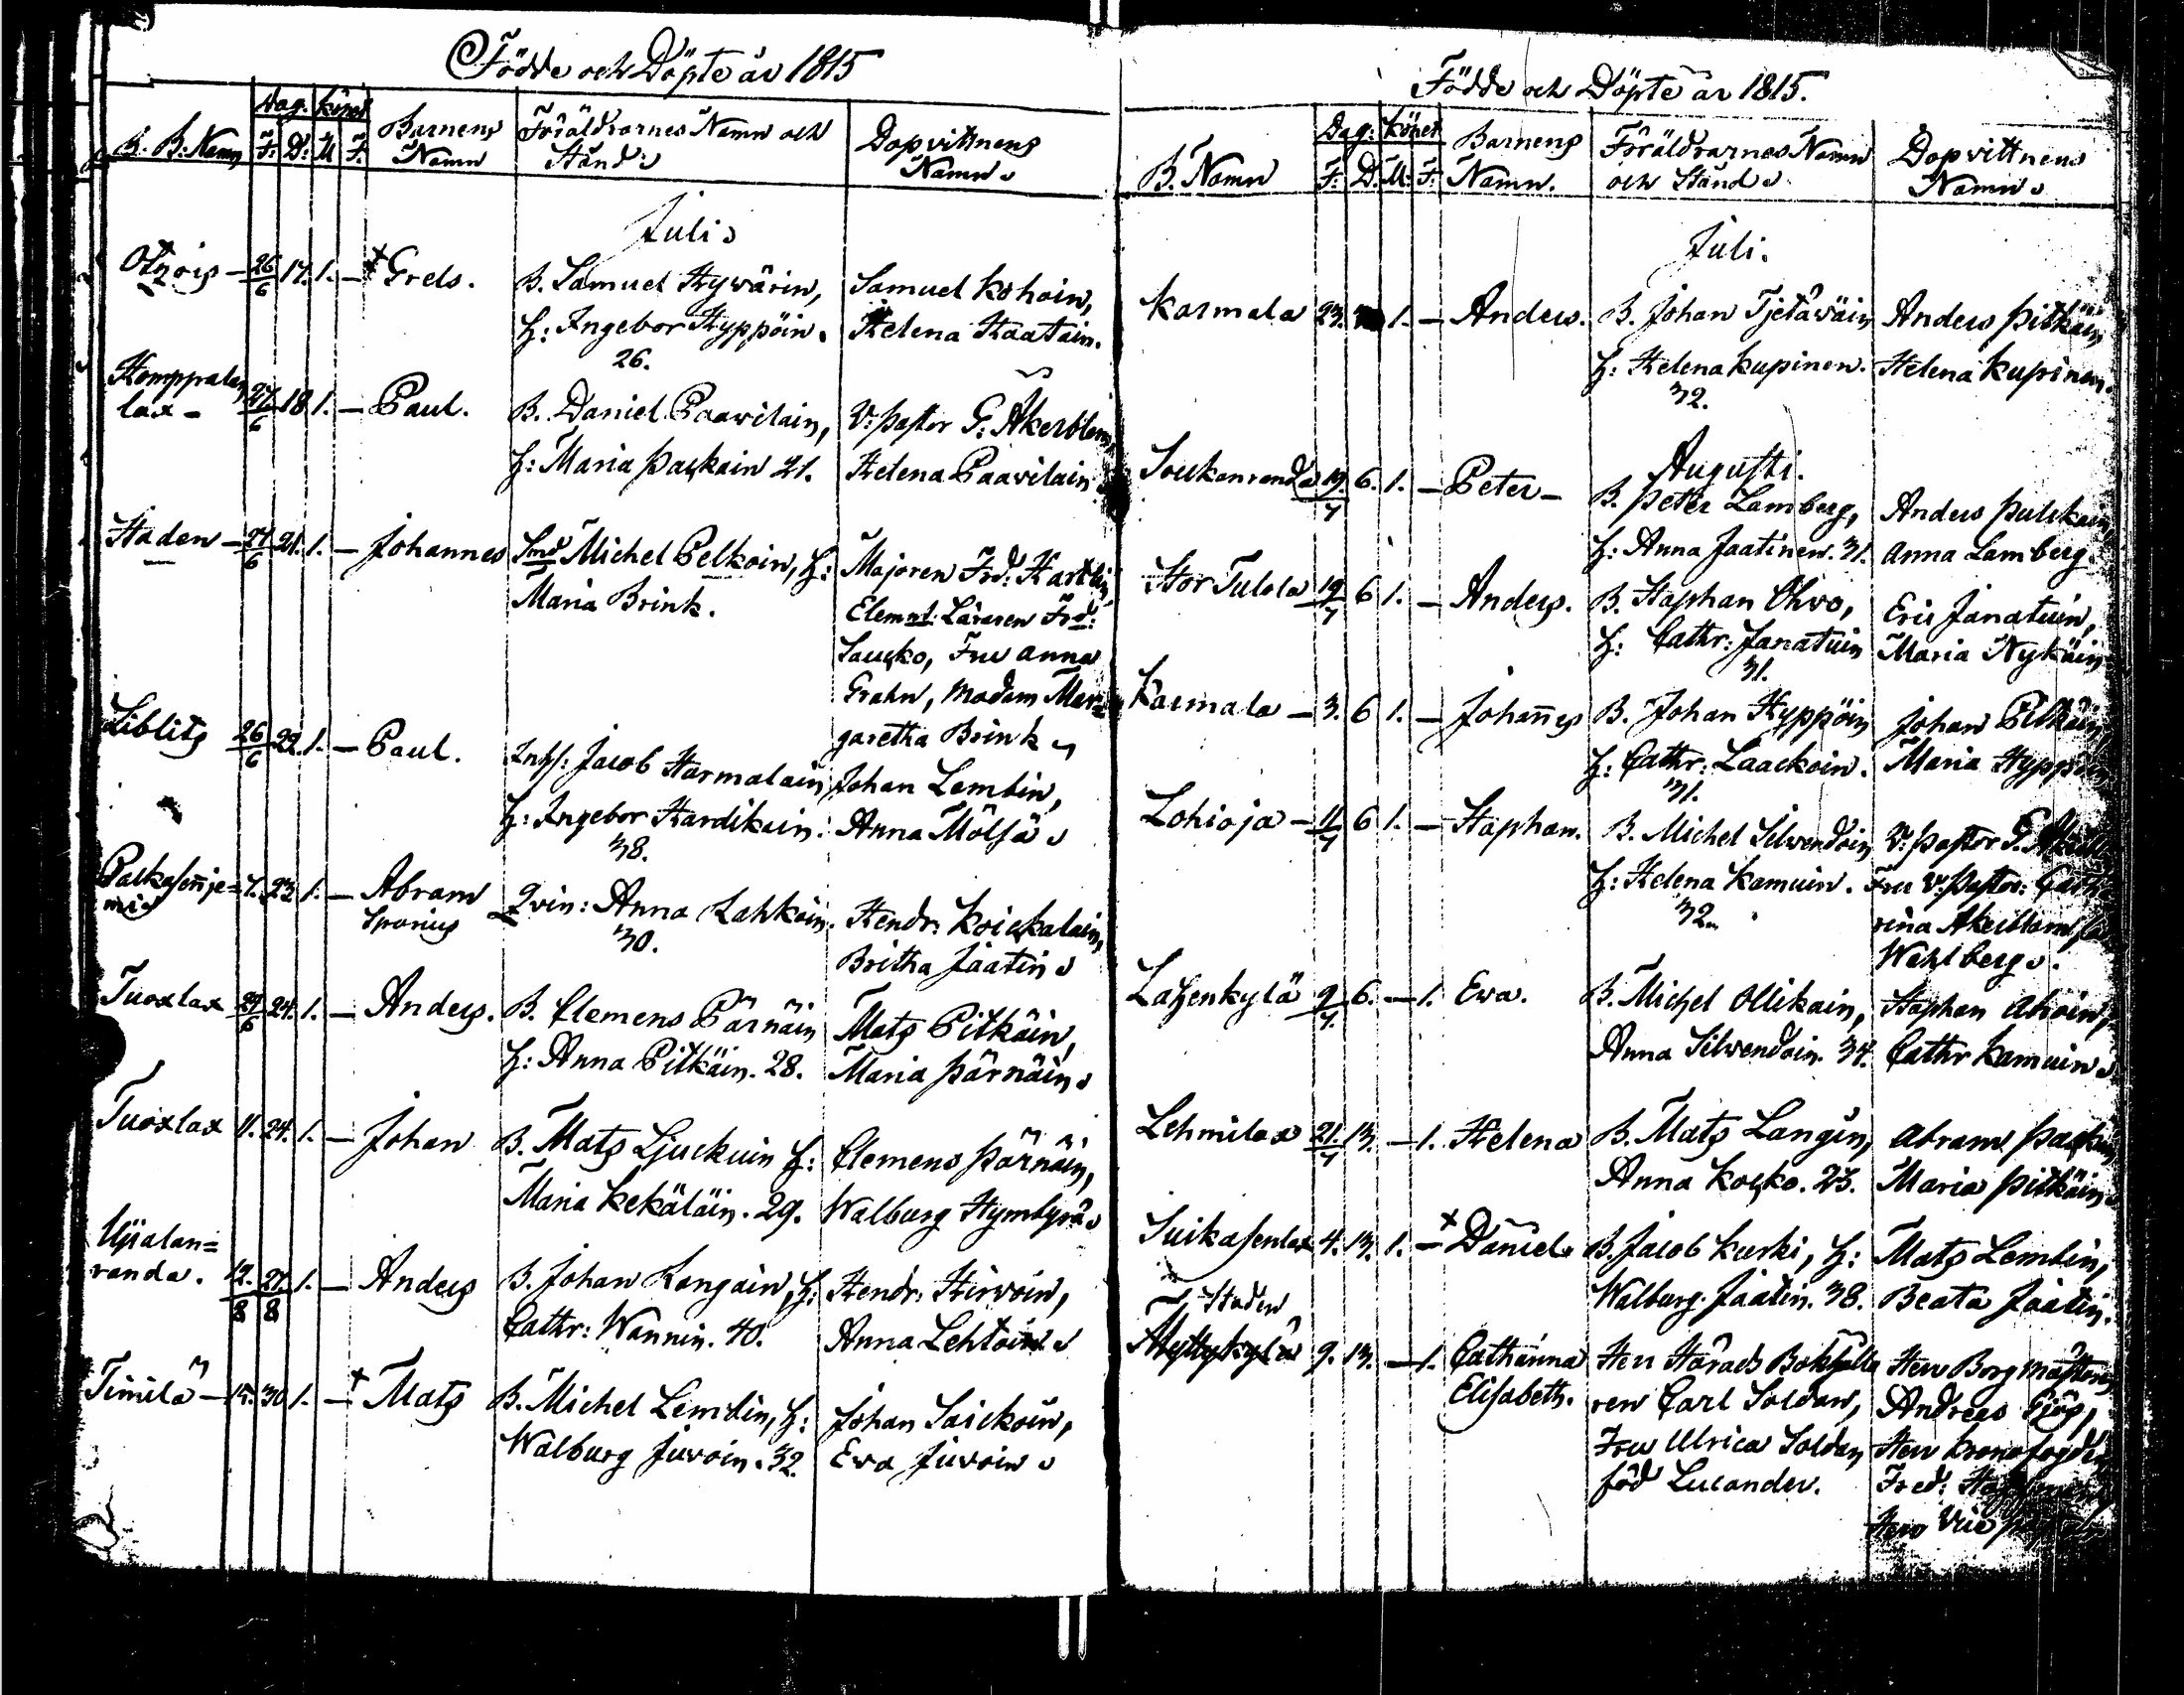 Födde och Döpte år 1815
B. B. Namn
Dag. Könet
F. D. M F.
Barnens Namn
Föräldrarnes Namn och Stånd
Dopvittnens Namn
Juli
Otzois - 26/6 17. 1. - + Grels.
B. Samuel Hyvärin,
H: Ingebor Hyppöin.
26.
Samuel Kohoin,
Helena Haatain.
Homppalan
lax - 27/6 18 1. - Paul.
B. Daniel Paavilain,
H: Maria Paskain 21.
V: Pastor G: Åkerblom,
Helena Paavilain
Staden - 24/6 21. 1. - Johannes
Smd Michel Pelkoin, H:
Maria Brink.
Majoren Frd:
Elemnt: Läraren Frd:
Saucko, Fru Anna
Grahn, Madam Mar=
garetha Brink
Liblits 26/6 22. 1. - Paul.
Inhs: Jacob Harmalain
H: Ingebor Hardikain.
38.
Johan Lembin,
Anna Mölsä
Palkasenje=
mi 7. 23 1. - Abram
Sporius
Qvin: Anna Lahkoin.
30.
Hendr: Koickalain,
Britha Jäatin
Tuoxlax 27/6 24. 1. - Anders.
B. Clemens Pärnäin
H: Anna Pitkäin. 28.
Mats Pitkäin,
Maria Pärnäin
Tuoxlax 11. 24. 1. - Johan
B. Mats Ljuckuin H:
Maria Kekäläin. 29.
Clemens Pärnäin,
Walburg
randa. 12./8 27./8 1. - Anders
B. Johan Kangain, H:
Cathr: Wannin. 40.
Hendr: Hirvoin,
Anna Lehtoin
Timila - 15. 30 1. - + Mats
B. Michel Lembin, H:
Walburg Juvoin. 32.
Johan Saickoin,
Eva Juvoin
Födde och Döpte år 1815.
B. Namn
Dag: Könet
F. D. M: F.
Barnens Namn.
Föräldrarnes Namn och Stånd
Dopvittnens Namn
Juli.
Karmala 23. 1. - Anders.
B. Johan Tjetäväin
H: Helena Kupinen.
32.
Anders Pitkäin,
Helena Kupinen.
Augusti.
Soukanranda 19/7 6. 1. - Peter -
B. Peter Lamberg,
H: Anna Jaatinen. 31.
Anders Pulckain,
Anna Lamberg.
Stor Tulola 19/7 6 1. - Anders.
B. Staphan Ohvo,
H: Cathr: Janatuin
31.
Eric Janatuin,
Maria Nykäin
Karmala - 3. 6 1. - Johañes
B. Johan Hyppöin
H: Cathr: Laackoin.
31.
Johan Pitkäin,
Maria Hyppöin
Lohioja - 11/7 6 1. - Staphan.
B. Michel Silvendoin
H: Helena Kamuin.
32.
V: Pastor G. Åkerblom
Fru V: Pastor: Cath
rina Åkerblom
Wahlberg.
Lahenkylä 9/7. 6. - 1. Eva.
B. Michel Ollikain,
Anna Silvendoin. 34.
Staphan Ahoin,
Cathr Kamuin
Lehmilax 21./7 13. - 1. Helena
B. Mats Langin,
Anna Kosko. 23.
Abram
Maria Pitkäin
Suikasenlax 4. 13. 1. - + Daniel
B. Jacob Kurki, H:
Walburg Jäatin. 38.
Mats Lembin,
Beata Jäatin.
Staden
9. 13. - 1. Catharina
Elisabeth.
Herr Härads Bokhålla
ren Carl Soldan,
Fru Ulrica Soldan
föd Lucander.
Herr Borgmästaren
Andreas
Herr Kronofogden
Fred:
Herr Vice